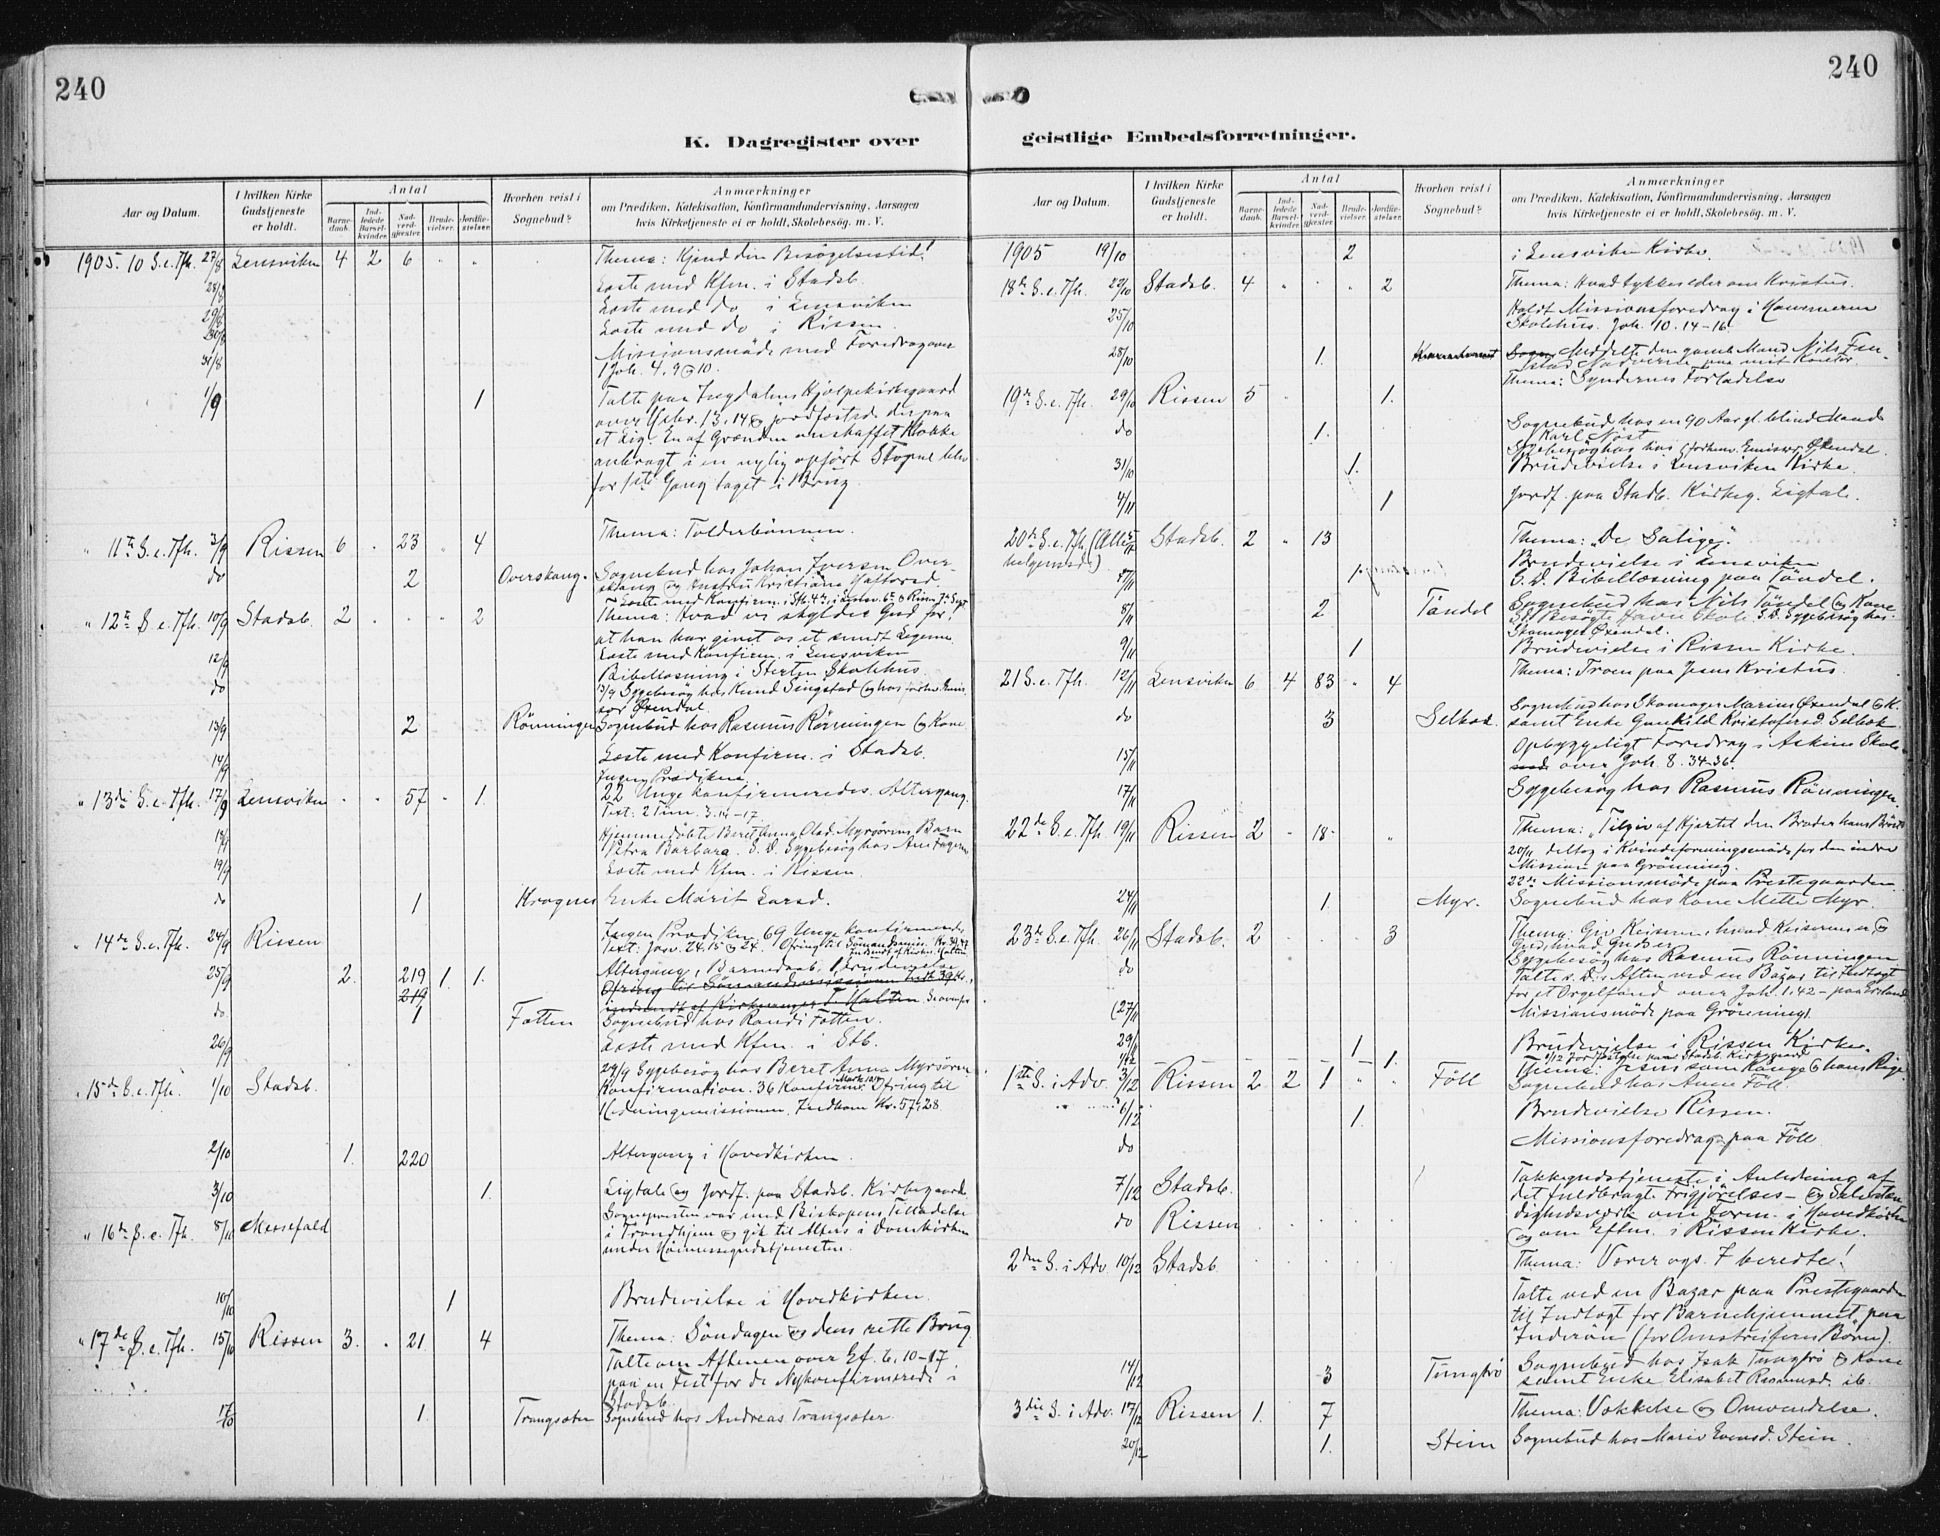 240
K. Dagregister over
Aar og Datum.
I hvilken Kirke Gudstjeneste er holdt.
Antal
Barnedaab.
Indledede Barselkvinder.
Nadverdgjester.
Brudevielser.
Jordfæstelser.
Hvorhen reist i Sognebud?
Anmærkninger
om Prædiken, Katekisation, Konfirmandundervisning, Aarsagen
hvis Kirketjeneste ei er holdt, Skolebesøg. m. V.
1905. 10 S. e. Tfh. 27/8 Lensviken 4 2 6 Thema: Kjend din Besøgelsestid!
28/8 Læste med Kfm. i Stadsb.
29/8 Læste med do i Lensviken
30/8 Læste med do i Rissen.
31/8 Missionsmøde med Foredrag over
1 Joh. 4, 9 & 10.
1/9 1 Talte paa Ingdalens Hjælpekirkegaard
over Hebr. 13, 14 & jordfæstede der paa
et Lig. En af Grænden anskaffet Klokke
anbragt i en nylig opført Støpul blev
for 1ste Gang taget i Brug.
" 11te S. e. Tfh. 3/9 Rissen 6 23 4 Thema: Tolderbønnen.
do 2 Overskang. Sognebud hos Johan Iversen Over-
skang og
Læste med Konfirm. i Stb. 4de, i Lensv. 6te & Rissen 7de Sept
" 12te S. e. Tfh. 10/9 Stadsb. 2 2 Thema: Hvad vi skylder Gud for,
at han har givet os et sundt Legeme
12/9 Læste med Konfirm. i Lensviken
do Bibellæsning i Sterten Skolehus.
13/9 Sygebesøg hos Knud Singstad og hos forhv. Emis-
sær Øxendal.
13/9 2 Rønningen Sognebud hos Rasmus Rønningen og Kone
14/9 Læste med Konfirm. i Stadsb.
Ingen Prædiken.
" 13de S. e. Tfh. 17/9 Lensviken 57 1 22 Unge konfirmeredes. Altergang.
Text: 2 Tim. 3. 14-17.
18/9 Hjemmedøbte Beret Anna Olsd. Myrsørens Barn
Petra Barbara. S. D. Sygebesøg hos
19/9 Læste med Kfm. i Rissen.
do 1 Kragnes Enke Marit Larsd.
" 14de S. e. Tfh. 24/9 Rissen Ingen Prædiken 69 Unge konfirmeredes
Text: Josv. 24, 15 & 24. Ofring til Sømandsmis. Kr. 39,47
25/9 2. 219 1 1. Altergang, Barnedaab, 1 Brudevielse
219 Ofring til Sømandsmissionen indk. 39 Kr.,
indsendt af Kirkesanger T. Halten
do 1 Fatten Sognebud hos Randi Fatten.
26/9 Læste med Kfm. i Stb.
29/9 Sygebesøg hos Beret Anna Myrsøren
" 15de S. e. Tfh. 1/10 Stadsb. Konfirmation. 36 Konfirm. Ofring til
Hedningemissionen. Indkom Kr. 57,28
2/10 1. 220 Altergang i Hovedkirken.
3/10 1. Ligtale og Jordf. paa Stadsb. Kirkegaard.
" 16de S. e. Tfh. 8/10 Messefald Sognepresten var med Biskopens Tilladelse
i Trondhjem & gik til Alters i Domkirken
under Høimessegudstjenesten.
10/10 1 Brudevielse i Hovedkirken.
" 17de S. e. Tfh. 15/10 Rissen 3. 21 4 Thema: Søndagen & dens rette Brug
Talte om Aftenen over Ef. 6. 10-17.
paa en Fest for de Nykonfirmerede i
Stadsb.
17/10 1. Trangsæter Sognebud hos Andreas Trangsæter.
240
geistlige Embedsforretninger.
Aar og Datum.
I hvilken Kirke Gudstjeneste er holdt.
Antal
Barnedaab.
Indledede Barselkvinder.
Nadverdgjester.
Brudevielser.
Jordfæstelser.
Hvorhen reist i Sognebud?
Anmærkninger
om Prædiken, Katekisation, Konfirmandundervisning, Aarsagen
hvis Kirketjeneste ei er holdt, Skolebesøg. m. V.
1905 19/10 2 i Lensviken Kirke.
18de S. e. Tfh. 22/10 Stadsb. 4 2 Thema: Hvad tykkes eder om Kristus.
25/10 Holdt Missionsforedrag i
Skolehus. Joh. 10. 14-16.
28/10 1. Meddelte den gamle Mand Nils
Nadverden paa mit Kontor.
19de S. e. Tfh. 29/10 Rissen 5 1. Thema: Syndernes Forladelse
do 1. Sognebud hos en 90 Aar gl. blind Mand
Karl Nøst
Sygebesøg hos forhenv. Emissær Øxendal.
31/10 1. Brudevielse i Lensviken Kirke.
4/11 1 Jordf. paa Stadsb. Kirkeg. Ligtale.
20de S. e. Tfh. (Alle- 5/11 Stadsb. 2 13 Thema: "De Salige".
helgensd.)
1. Brudevielse i Lensviken
S. D. Bibellæsning paa Tøndel.
8/11 2 Tøndel Sognebud hos Nils Tøndel og Kone
S. D. Besøgte Havn Skole S. D. Sygebesøg hos
Skomager Øxendal.
9/11 1 Brudevielse i Rissen Kirke.
21 S. e. Tfh. 12/11 Lensviken 6 4 83 4 Thema: Troen paa Jesus Kristus.
do 3 Selbæk. Sognebud hos Skomager Marius Øxendal & K.
samt Enke Gunhild Kristofersd. Selbæk
15/11 Opbyggeligt Foredrag i Askim Skole
over Joh. 8. 34-36.
17/11 Sygebesøg hos Rasmus Rønningen.
22de S. e. Tfh. 19/11 Rissen 2 18 Thema: "Tilgiv af Hjertet den Broder hans Brøst"
20/11 deltog i Kvindeforeningsmøde for den indre
Mission paa Grønning.
22de Missionsmøde paa Prestegaarden
24/11 1. Myr. Sognebud hos Kone Mette Myr.
23de S. e. Tfh. 26/11 Stadsb. 2 3 Thema: Giv Keiseren, hvad Keiserens er &
Gud, hvad Guds er
do Sygebesøg hos Rasmus Rønningen
Talte s. D. s Aften ved en Bazar til Indtægt
for et Orgelfond over Joh. 1. 42 -
(27/11 Missionsmøde paa Grønning).
29/11 1 Brudevielse i Rissen Kirke.
1/12 1. 1/12 Jordfæstelse paa Stadsb. Kirkegaard
1ste S. i Adv. 3/12 Rissen 2 2 1 Föll Thema: Jesus som Konge & hans Rige
Sognebud hos Anne Föll
6/12 1. Brudevielse Rissen.
do Missionsforedrag paa Föll
7/12 Stadsb. Takkegudstjeneste i Anledning af
det fuldbragte Frigjørelses- og Selvstæn-
do Rissen dighedsværk om Form. i Hovedkirken
og om Eftm. i Rissen Kirke.
2den S. i Adv. 10/12 Stadsb. Thema: Værer ogs. I beredte!
Talte ved en Bazar paa Prestegaarden
til Indtægt for Barnehjemmet paa
Inderøen (for Omstreiferes Børn).
14/12 3 Tungtrø Sognebud hos Isak Tungtrø & Kone
samt Enke Elisabet Rasmusd. ib.
3die S. i Adv. 17/12 Rissen 1. 7 Thema: Vækkelse og Omvendelse.
20/12 1. Stein Sognebud hos Marie Evensd. Stein.